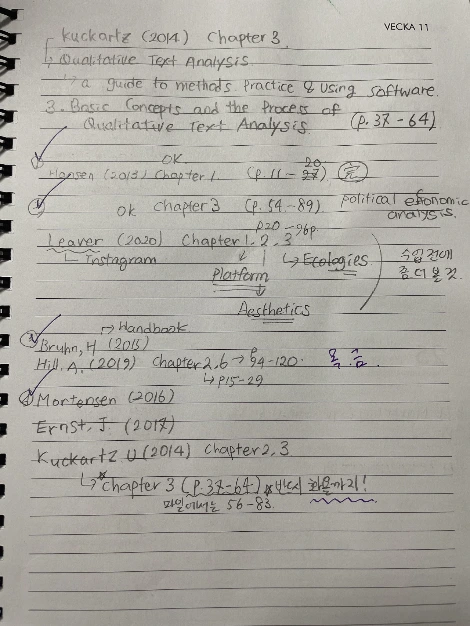 VECKA 11
Kuckartz (2014) Chapter 3.
Qualitative Text Analysis
a guide to methods. Practice & Using software.
3. Basic Concepts and the Process of
Qualitative Text Analysis. (p.37-64)
OK 20
Hansen (2013) Chapter 1 (p.11-27) 完
OK chapter 3 (p.54-89) political economic analysis.
p20-96p
Leaver (2020) Chapter 1, 2, 3
Instagram Ecologies 수업전에
Platform 좀 더 볼 것.
Aesthetics
Handbook
Bruhn, H (2013)
Hill. A, (2019) Chapter 2, 6 → p94-120. 목, 금.
p15-29
Mortensen (2016)
Ernst, J. (2017)
Kuckartz U (2014) Chapter 2, 3
*chapter 3 (p.37-64) *반드시 화요일까지!
파일에서는 56-83.